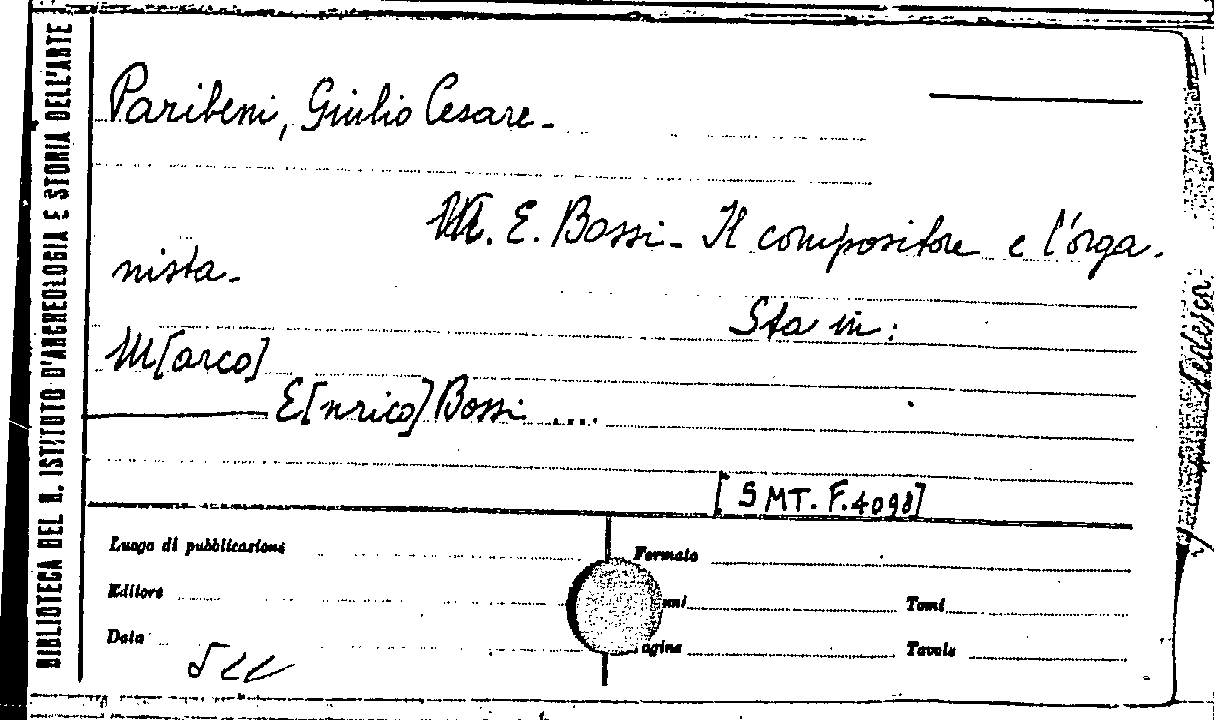 BIBLIOTECA DEL R. ISTITUTO D'ARCHEOLOGIA E STORIA DELL'ARTE
Paribeni, Giulio Cesare-
M. E. Bossi- Il compositore e l'orga-
nista-
Sta in:
M[arco]
E[nrico] Bossi ....
[SMT. F.4098]
Luogo di pubblicazione
Formato
Editore
Tomi
Data
agina
Tavole